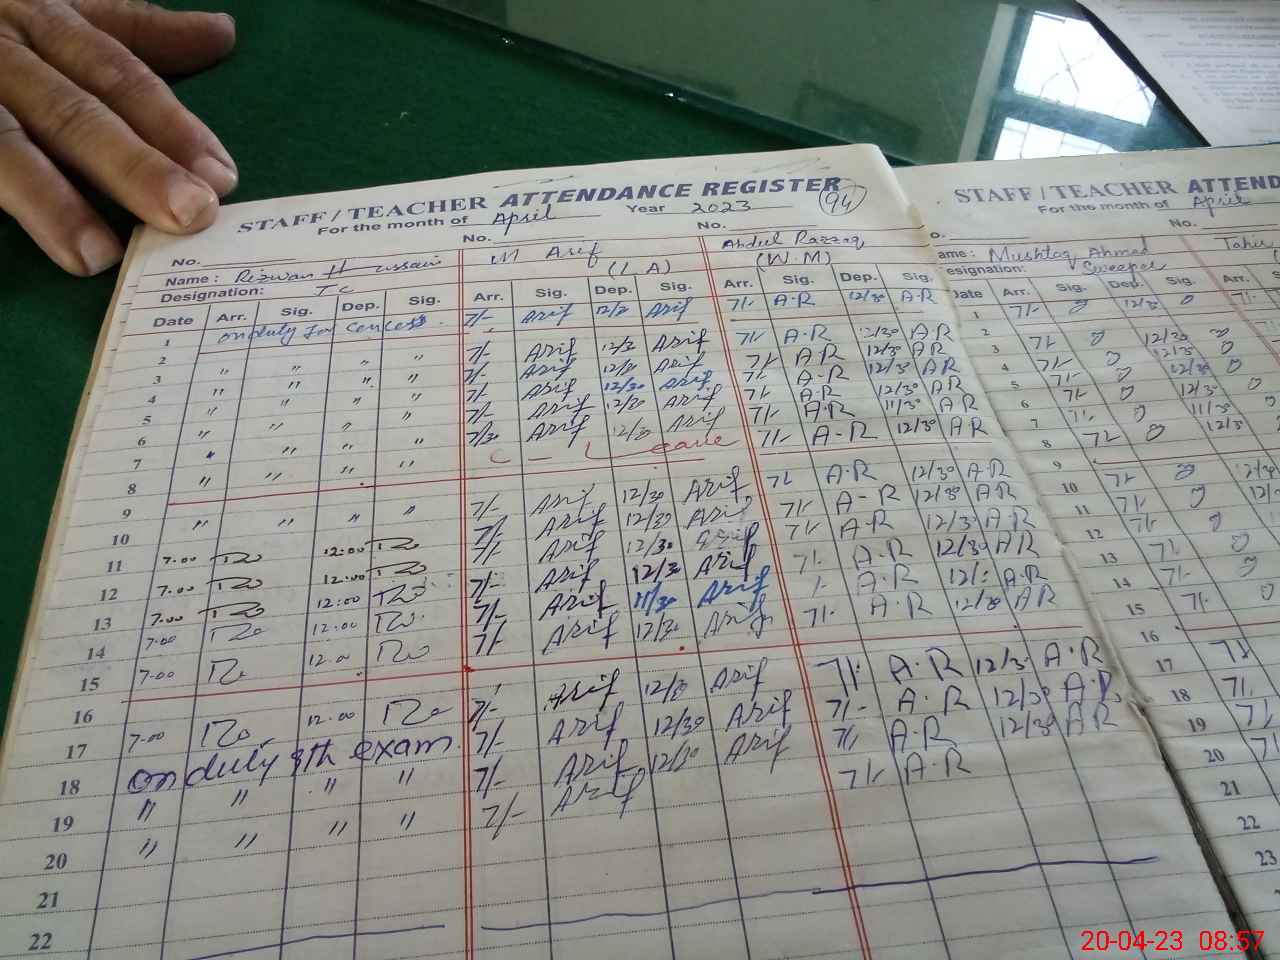 STAFF / TEACHER ATTENDANCE REGISTER
94
For the month of April Year 2023
No. No. No.
Name : Rizwan Hussain M Arif Abdul Razzaq
Designation: (L A) (W.M)
Date Arr. Sig. Dep. Sig. Arr. Sig. Dep. Sig. Arr. Sig. Dep. Sig.
1 on duty for 7/- Arif Arif 7/- A.R 12/30 A R
2 " " " " 7/- Arif 12/30 Arif 7/- A.R 12/30 A R
3 " " " " 7/- Arif Arif 7/- A R 12/30 A R
4 " " " " 7/- Arif 12/30 Arif 7/- A-R 12/30 A R
5 " " " " 7/- Arif 12/30 Arif 7/- A.R 12/30 A R
6 " " " " 7/30 Arif 12/30 Arif 7/- A.R 11/30 A R
7 " " " " C - Leave 7/- A-R 12/30 A R
8
9 " " " " 7/- Arif 12/30 Arif 7/- A.R 12/30 A-R
10 7.00 12:00 7/- Arif 12/30 Arif 7/- A-R 12/30 A R
11 7.00 12:00 7/- Arif 12/30 Arif 7/- A.R 12/30 A R
12 7.00 12:00 7/- Arif 12/30 Arif 7/- A.R 12/30 A R
13 7.00 12.00 7/- Arif 11/30 Arif A.R A R
14 7.00 12.00 7/- Arif 12/30 Arif 7/- A.R 12/30 A R
15
16 7.00 12.00 7/- Arif 12/30 Arif 7/- A.R 12/30 A.R
17 on duly 8th exam 7/- Arif 12/30 Arif 7/- A.R 12/30 A.R
18 " " " " 7/- Arif 12/30 Arif 7/- A.R 12/30 A R
19 " " " " 7/- Arif 7/- A.R
20
21
22
STAFF / TEACHER ATTEND
For the month of April
No.
ame: Mushtaq Ahmad Tahir
esignation: Sweeper
Date Arr. Sig. Dep. Sig. Arr.
1 7/- 12/30 7/-
2 7/- 12/30
3 7/- 12/30
4 7/- 12/30
5 7/- 12/30
6 7/- 11/30
7 7/- 12/30
8
9 7/- 12/30
10 7/-
11 7/-
12 7/-
13 7/-
14 7/-
15
16 7/-
17 7/-
18 7/-
19
20
21
22
23
20-04-23 08:57